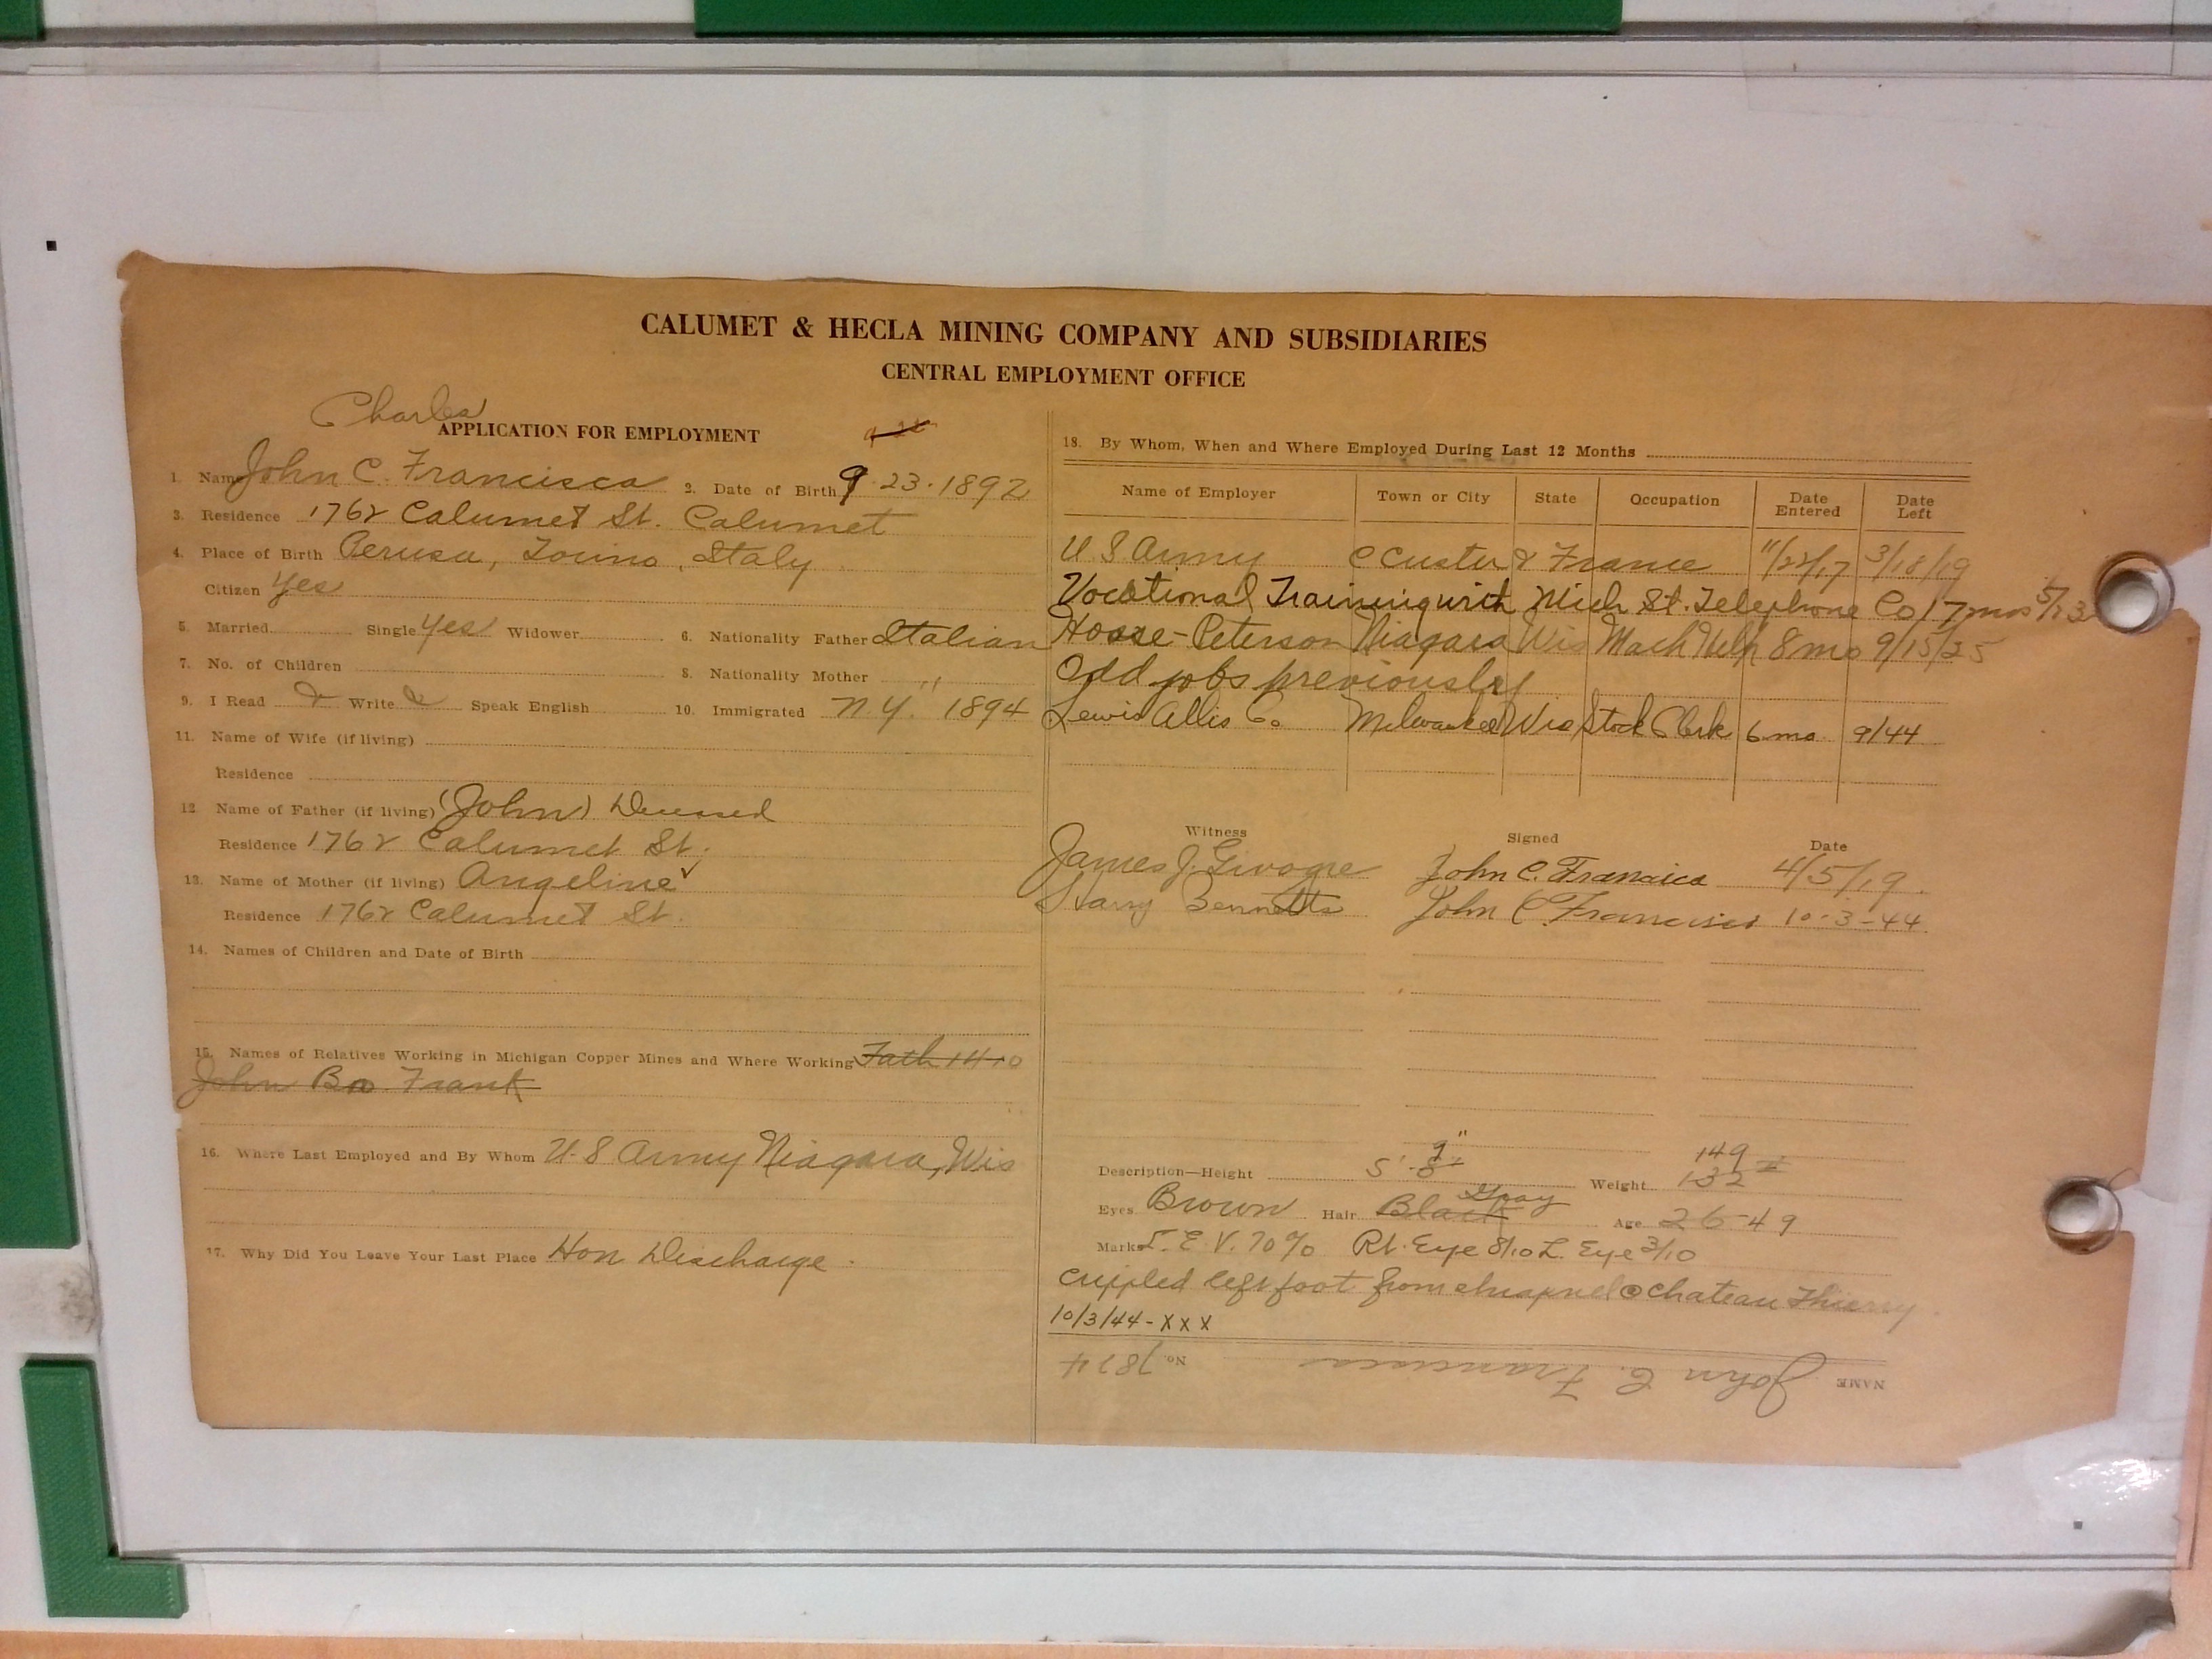 CALUMET & HECLA MINING COMPANY AND SUBSIDIARIES
CENTRAL EMPLOYMENT OFFICE
Charles
APPLICATION FOR EMPLOYMENT
1. Name John C. Francisco 2. Date of Birth 9-23-1892
3. Residence 1762 Calumet St. Calumet
4. Place of Birth Perusa, Torino, Italy
Citizen Yes
5. Married Single Yes Widower 6. Nationality Father Italian
7. No. of Children 8. Nationality Mother "
9. I Read & Write & Speak English 10. Immigrated N.Y. 1894
11. Name of Wife (if living)
Residence
12 Name of Father (if living) (John) Deceased
Residence 1762 Calumet St.
13. Name of Mother (if living) Angeline ✓
Residence 1762 Calumet St.
14. Names of Children and Date of Birth
15. Names of Relatives Working in Michigan Copper Mines and Where Working Fath 1410
John Bro Frank
16. Where Last Employed and By Whom U.S Army Niagara, Wis
17. Why Did You Leave Your Last Place Hon Discharge
18. By Whom, When and Where Employed During Last 12 Months
Name of Employer Town or City State Occupation Date Entered Date Left
U S Army C Custer & France 11/22/17 3/18/19
Vocational Training with Mich St. Telephone Co 17 mos 5/23
Hoase-Peterson Niagara Wis Mach Help 8 mo 9/15/25
Odd jobs previously
Lewis Allis Co Milwaukee Wis Stock Clerk 6 mo. 9/44
Witness Signed Date
James J. John C. Francisco 4/5/19.
Harry Bennetts John C. Francisco 10-3-44
Description—Height 5'-8" 9" Weight 132 149 #
Eyes Brown Hair Black Gray Age 26-49
Marks I. E. V. 70% Rt. Eye 8/10 L. Eye 3/10
Crippled left foot from shrapnel @ Chateau Thierry.
10/3/44-XXX
NAME John C. Francisco No. 7874